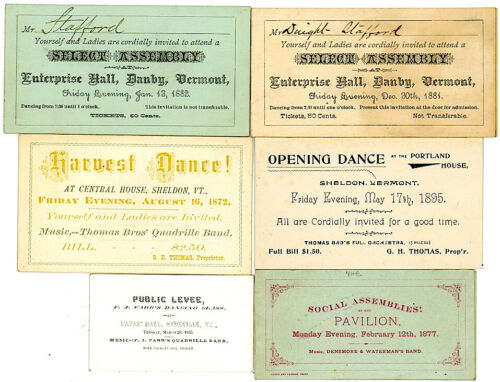 Mr Stafford
Yourself and Ladies are cordially invited to attend a
SELECT ASSEMBLY
AT
Enterprise Hall, Danby, Vermont,
Friday Evening, Jan. 13, 1882.
Dancing from 7:30 until 1 o'clock. This invitation is not transferable.
TICKETS, 50 Cents.
Mr Dwight Stafford
Yourself and Ladies are cordially invited to attend a
SELECT ASSEMBLY
AT
Enterprise Hall, Danby, Vermont,
Friday Evening, Dec. 30th, 1881.
Dancing from 7:30 until one o'clock. Present this invitation at the door for admission.
Tickets, 50 Cents. Not Transferable.
Harvest Dance!
AT CENTRAL HOUSE, SHELDON, VT.,
FRIDAY EVENING, AUGUST 16, 1872.
Yourself and Ladies are Invited.
Music,--Thomas Bros' Quadrille Band.
BILL - - - - $2.50.
G. D. THOMAS, Proprietor.
OPENING DANCE AT THE PORTLAND HOUSE,
SHELDON, VERMONT.
Friday Evening, May 17th, 1895.
All are Cordially invited for a good time.
THOMAS BRO'S FULL ORCHESTRA,
Full Bill $1.50. G. H. THOMAS, Prop'r.
PUBLIC LEVEE,
F. J. FARR'S DANCING CLASS,
HALL,
MUSIC--F. J. FARR'S QUADRILLE BAND.
SOCIAL ASSEMBLIES!
AT THE
PAVILION,
Monday Evening, February 12th, 1877.
Music, DENSMORE & WATERMAN'S BAND.